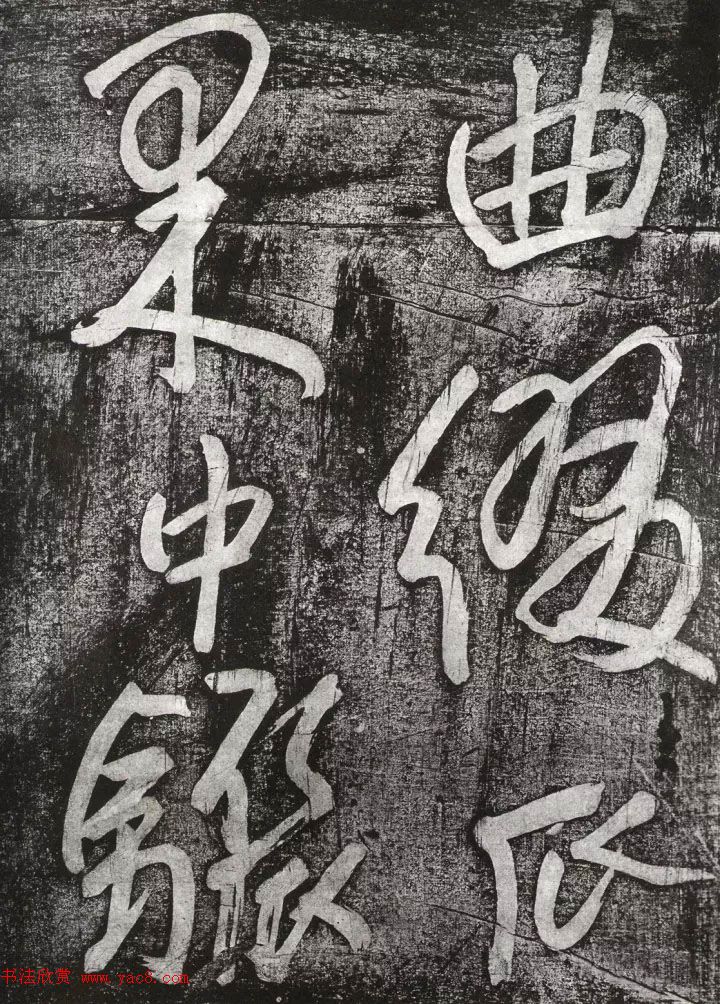 曲綴瓜
果中
书法欣赏 www.yac8.com